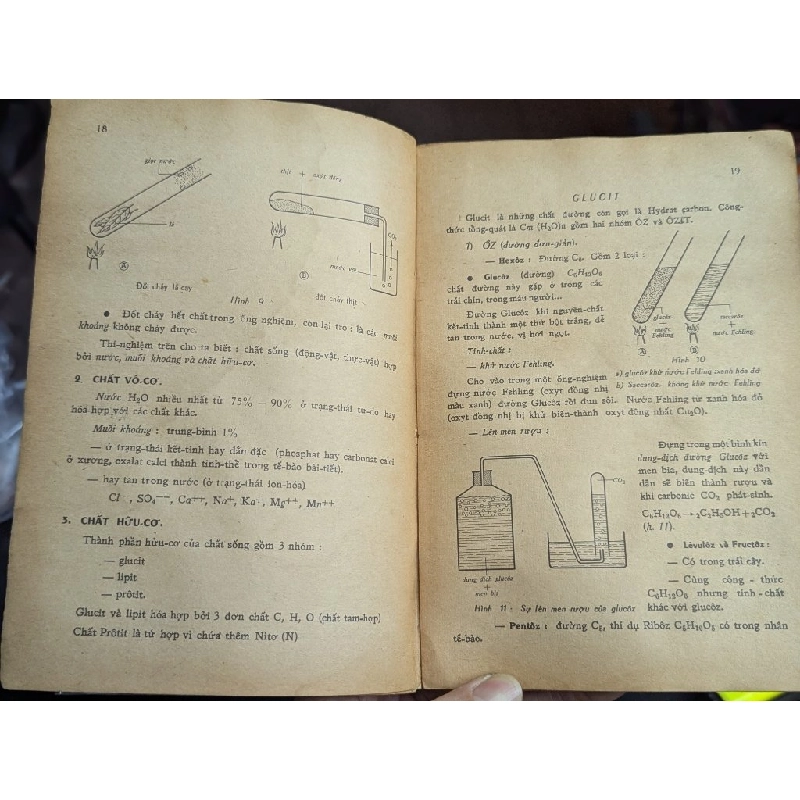 18
giọt nước
thịt + oxyt đồng
CO₂
nước vôi
Ⓐ
Ⓑ
Đốt cháy là cây
đốt cháy thịt
Hình 9
● Đốt cháy hết chất trong ống nghiệm, còn lại tro : là các muối
khoáng không cháy được.
Thí-nghiệm trên cho ta biết : chất sống (động-vật, thực-vật) hợp
bởi nước, muối khoáng và chất hữu-cơ.
2. CHẤT VÔ-CƠ.
Nước H₂O nhiều nhất từ 75% — 90% ở trạng-thái tự-do hay
hóa-hợp với các chất khác.
Muối khoáng : trung-bình 1%
— ở trạng-thái kết-tinh hay dẫn đặc (phosphat hay carbonat calci
ở xương, oxalat calci thành tinh-thể trong tế-bào bài-tiết).
— hay tan trong nước (ở trạng-thái ion-hóa)
Cl⁻, SO₄⁻⁻, Ca⁺⁺, Na⁺, Ka⁺, Mg⁺⁺, Mn⁺⁺
3. CHẤT HỮU-CƠ.
Thành phần hữu-cơ của chất sống gồm 3 nhóm :
— glucit
— lipit
— prôtit.
Glucit và lipit hóa hợp bởi 3 đơn chất C, H, O (chất tam-hợp)
Chất Prôtit là tứ hợp vì chứa thêm Nitơ (N)
19
GLUCIT
Glucit là những chất đường còn gọi là Hydrat carbon. Công-
thức tổng-quát là Cm (H₂O)n gồm hai nhóm ÔZ và ÔZIT.
1) ÔZ (đường đơn-giản).
— Hexôz : Đường C₆. Gồm 2 loại :
● Glucôz (đường) C₆H₁₂O₆
chất đường này gặp ở trong các
trái chín, trong máu người...
Đường Glucôz khi nguyên-chất
kết-tinh thành một thứ bột trắng, dễ
tan trong nước, vị hơi ngọt.
Tính-chất :
— khử nước Fehling.
Cho vào trong một ống-nghiệm
đựng nước Fehling (oxyt đồng nhị
màu xanh) đường Glucôz rồi đun sôi. Nước Fehling từ xanh hóa đỏ
(oxyt đồng nhị bị khử biến-thành oxyt đồng nhất Cu₂O).
glucôz
+
nước Fehling
Ⓐ
saccarôz
+
nước Fehling
Ⓑ
Hình 10
a) glucôz khử nước Fehling xanh hóa đỏ
b) Saccarôz không khử nước Fehling
— Lên men rượu :
Đựng trong một bình kín
dung-dịch đường Glucôz với
men bia, dung-dịch này dần
dần sẽ biến thành rượu và
khí carbonic CO₂ phát-sinh.
C₆H₁₂O₆ → 2C₂H₅OH + 2CO₂
(h. 11).
CO₂
dung dịch glucôz
+
men bia
Hình 11 : Sự lên men rượu của glucôz
● Lévulôz và Fructôz :
— Có trong trái cây.
— Cùng công-thức
C₆H₁₂O₆ nhưng tính-chất
khác với glucôz.
— Pentôz : đường C₅, thí dụ Ribôz C₅H₁₀O₅ có trong nhân
tế-bào.